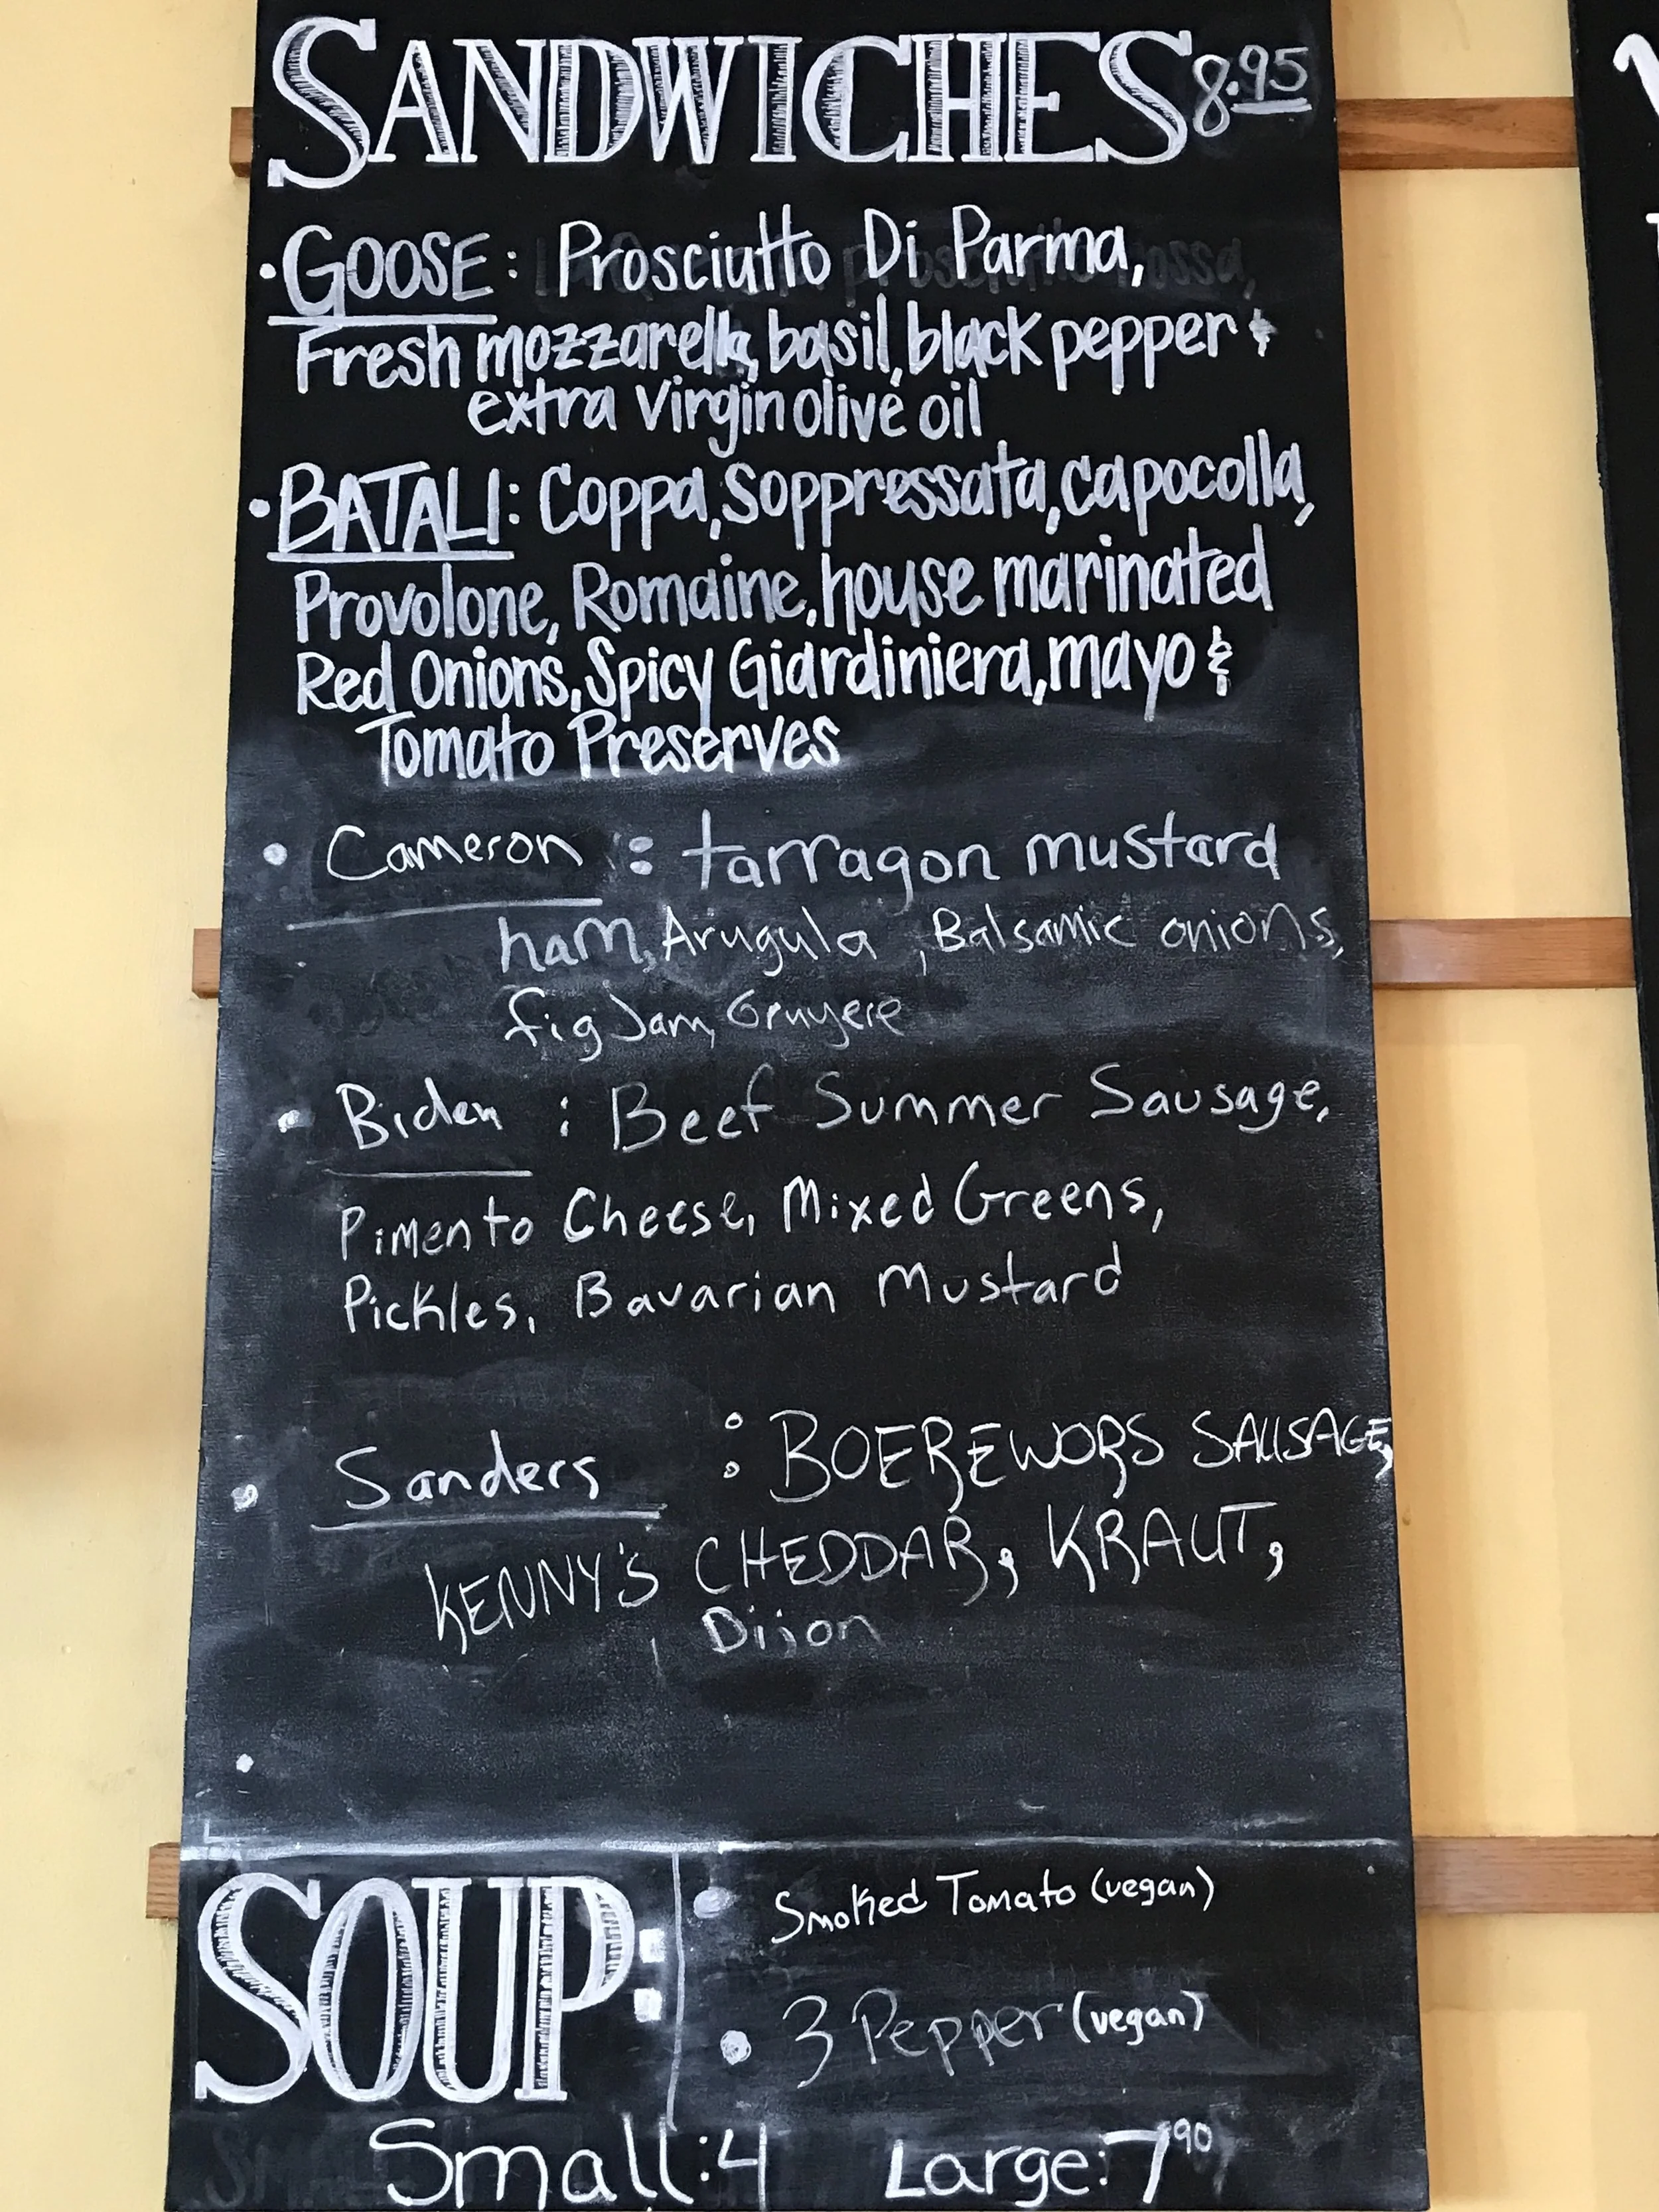 SANDWICHES 8.95
• GOOSE: Prosciutto Di Parma,
Fresh mozzarella, basil, black pepper &
extra virgin olive oil
• BATALI: Coppa, Soppressata, capocolla,
Provolone, Romaine, house marinated
Red Onions, Spicy Giardiniera, mayo &
Tomato Preserves
• Cameron : tarragon mustard
ham, Arugula, Balsamic onions,
fig Jam, Gruyere
• Biden : Beef Summer Sausage,
Pimento Cheese, Mixed Greens,
Pickles, Bavarian Mustard
• Sanders : BOEREWORS SAUSAGE,
KENNY'S CHEDDAR, KRAUT,
Dijon
•
SOUP:
• Smoked Tomato (vegan)
• 3 Pepper (vegan)
Small: 4 Large: 7 90